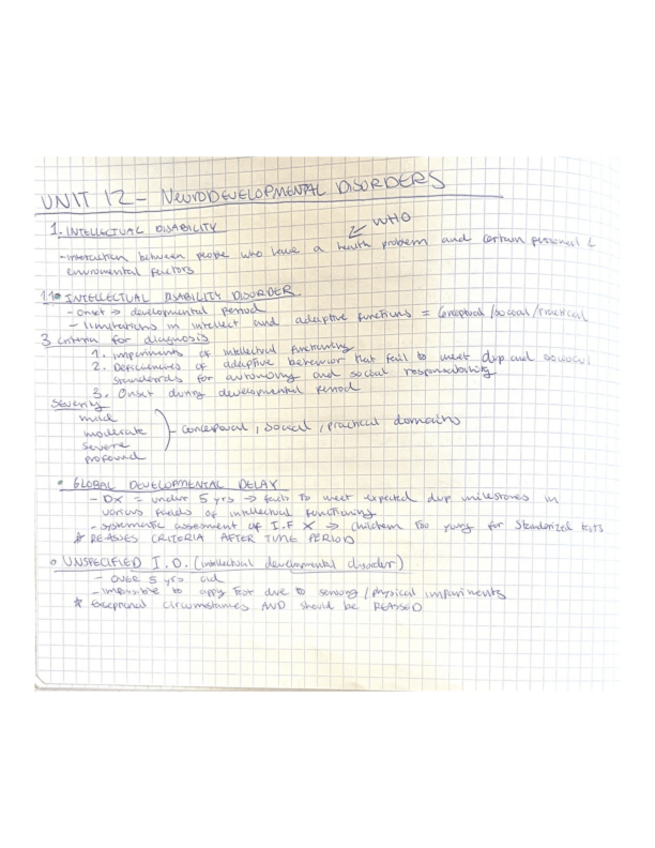 UNIT 12 - NEURODEVELOPMENTAL DISORDERS
WHO
1. INTELLECTUAL DISABILITY
- interaction between people who have a health problem and certain personal &
enviromental factors
1.1 INTELLECTUAL DISABILITY DISORDER
- onset → developmental period
- limitations in intellect and adaptive functions = Conceptual / social / Practical
3 criteria for diagnosis
1. impairments of intellectual functioning
2. Deficiencies of adaptive behavior that fail to meet dvp and
standards for autonomy and social responsability
3. Onset during developmental Period
Severity
mild
moderate
severe
profound
conceptual, social, practical domains
• GLOBAL DEVELOPMENTAL DELAY
- DX = under 5 yrs → fails to meet expected dvp milestones in
various fields of intellectual functioning
- systematic assesment of I.F X → too young for standarized tests
* REASSES CRITERIA AFTER TIME PERIOD
• UNSPECIFIED I.D. (intellectual developmental disorder)
- OVER 5 yrs old
- impossible to apply test due to sensory / physical
* Exceptional circumstances AND should be REASSED